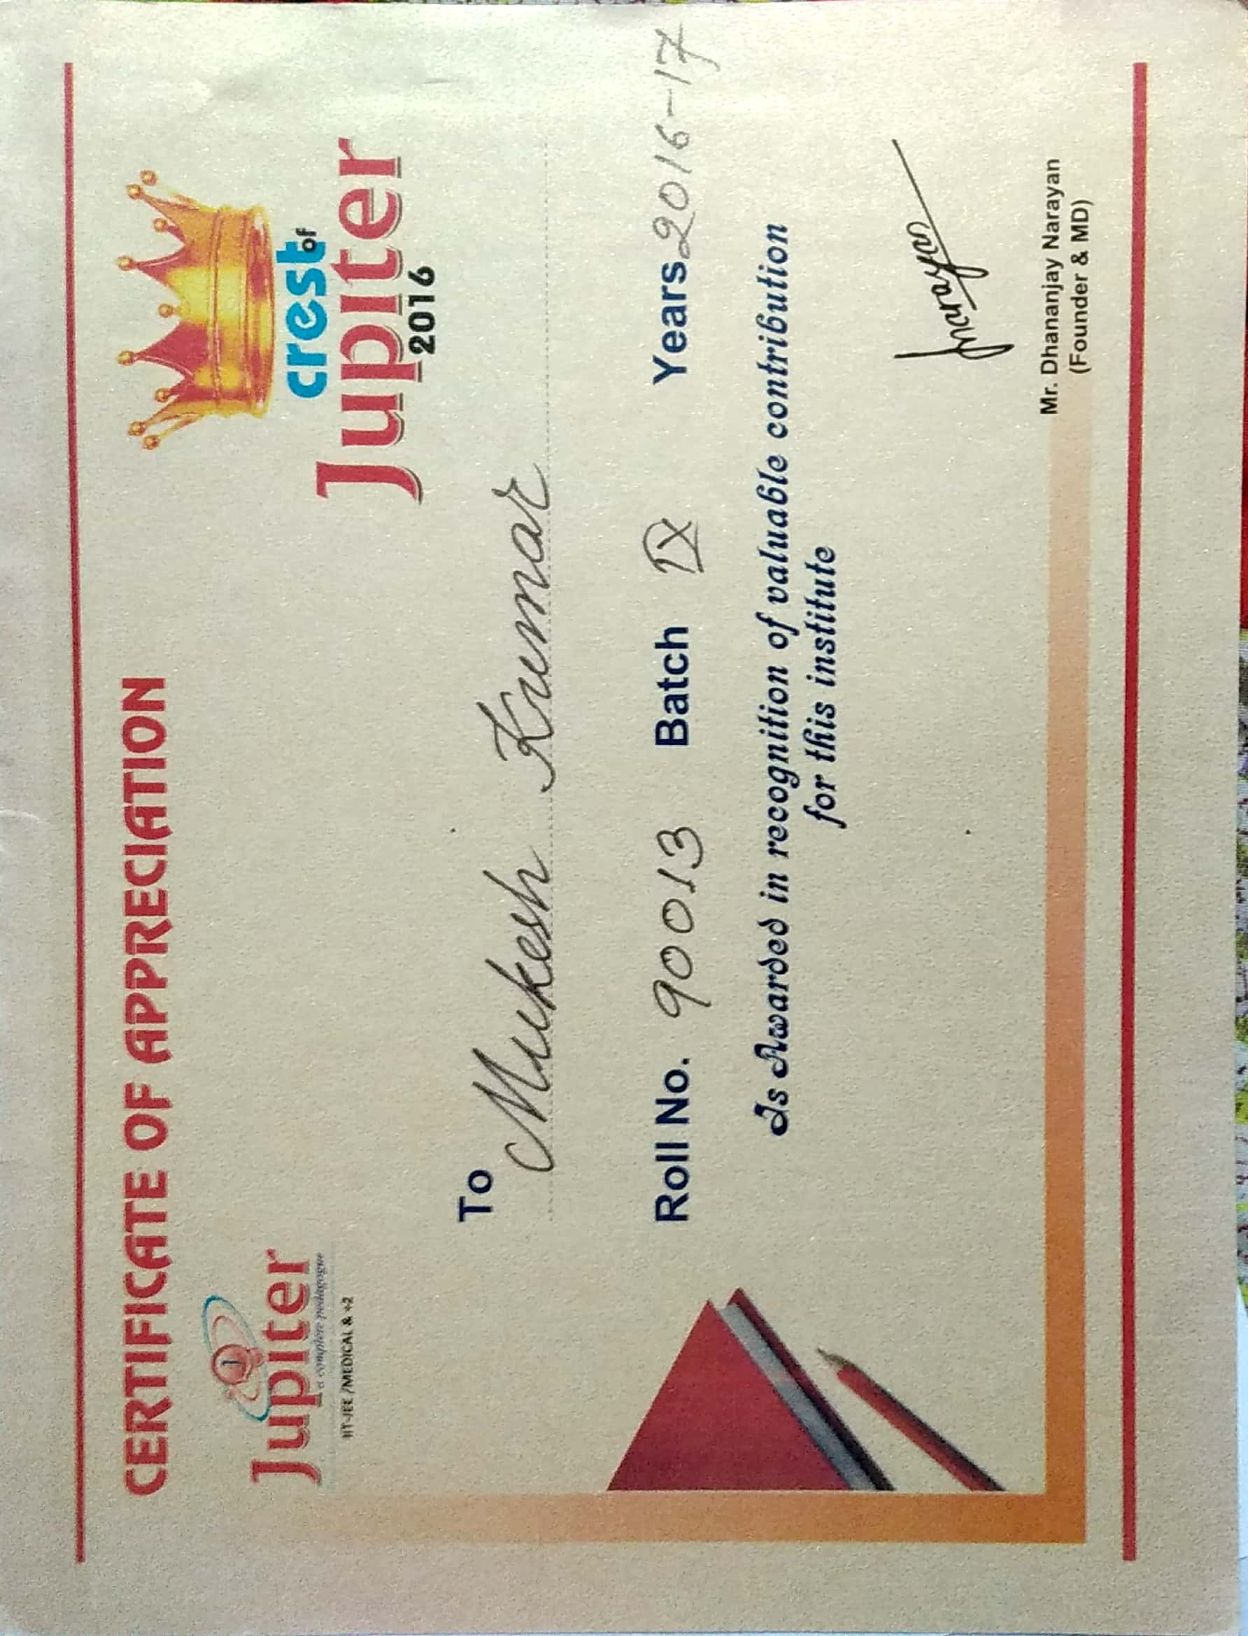 CERTIFICATE OF APPRECIATION
J
Jupiter
a complete pedagogue
IIT-JEE /MEDICAL & +2
crest of
Jupiter
2016
To
Mukesh Kumar
Roll No. 90013 Batch IX Years 2016-17
Is Awarded in recognition of valuable contribution
for this institute
Dnarayan
Mr. Dhananjay Narayan
(Founder & MD)